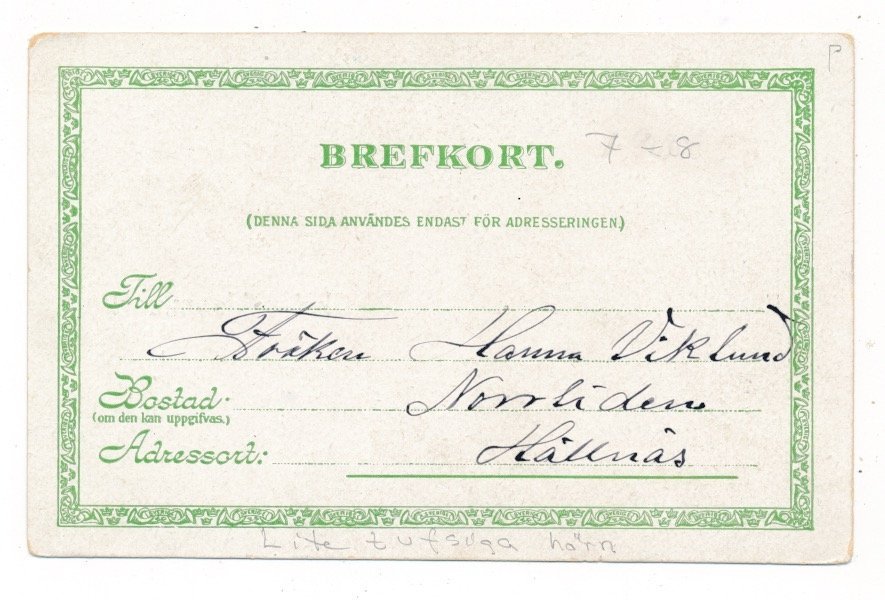 P
BREFKORT. 7-8
(DENNA SIDA ANVÄNDES ENDAST FÖR ADRESSERINGEN)
Till
Fröken Hanna Viklund
Bostad: Norrliden
(om den kan uppgifvas.)
Adressort: Hällnäs
Lite tufsiga hörn